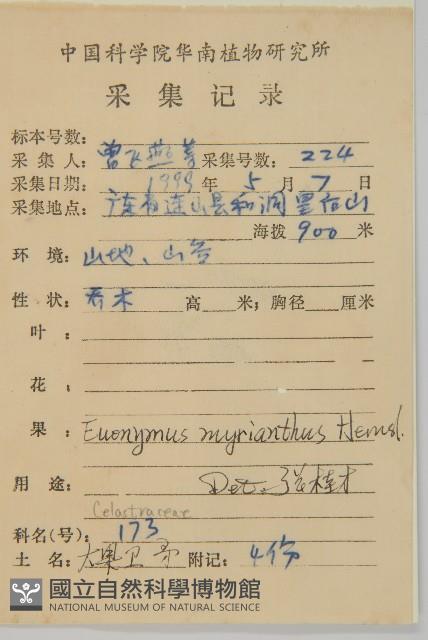 中国科学院华南植物研究所
采集记录
标本号数:
采集人: 曾飞燕等 采集号数: 224
采集日期: 1999 年 5 月 7 日
采集地点: 广东省连山县和洞黑石山
海拨 900 米
环境: 山地、山谷
性状: 乔木 高 米; 胸径 厘米
叶:
花:
果: Euonymus myrianthus Hemsl.
用途: Det. 张桂才
Celastraceae
科名(号): 173
土名: 大果卫矛 附记: 4份
國立自然科學博物館
NATIONAL MUSEUM OF NATURAL SCIENCE